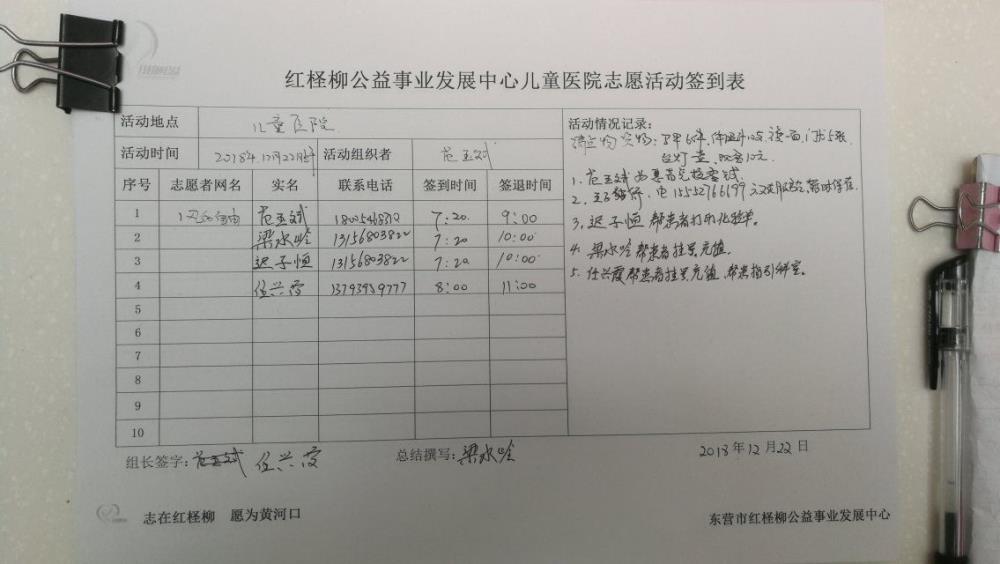 红柽柳公益事业发展中心儿童医院志愿活动签到表
活动地点 儿童医院 活动情况记录:
活动时间 2018年12月22日 活动组织者 范玉斌
序号 志愿者网名 实名 联系电话 签到时间 签退时间
1 范玉斌 7:20 9:00
2 梁水吟 13156803822 7:20 10:00
3 迟子恒 13156803822 7:20 10:00
4 任兴霞 13793959777 8:00 11:00
5
6
7
8
9
10
1. 范玉斌
2. 电15552766199 暂时保存
3. 迟子恒 帮患者打印化验单。
4. 梁水吟 帮患者挂号充值。
5. 任兴霞 帮患者挂号充值,帮患指引科室。
组长签字: 范玉斌 任兴霞 总结撰写: 梁水吟 2018年12月22日
志在红柽柳 愿为黄河口 东营市红柽柳公益事业发展中心